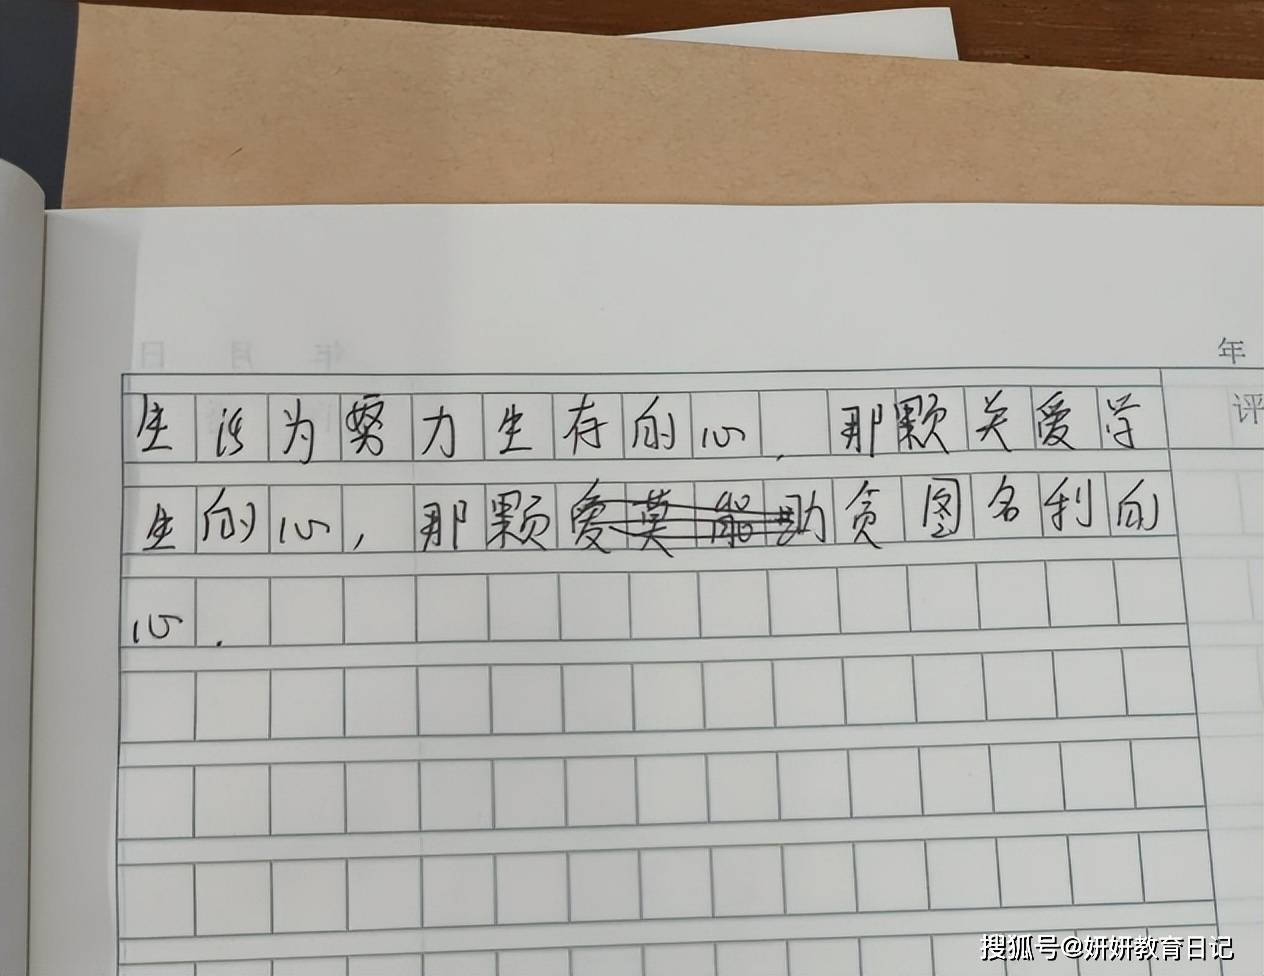 年
评
生活为努力生存的心，那颗关爱学
生的心，那颗爱莫能助贪图名利的
心.
搜狐号@妍妍教育日记